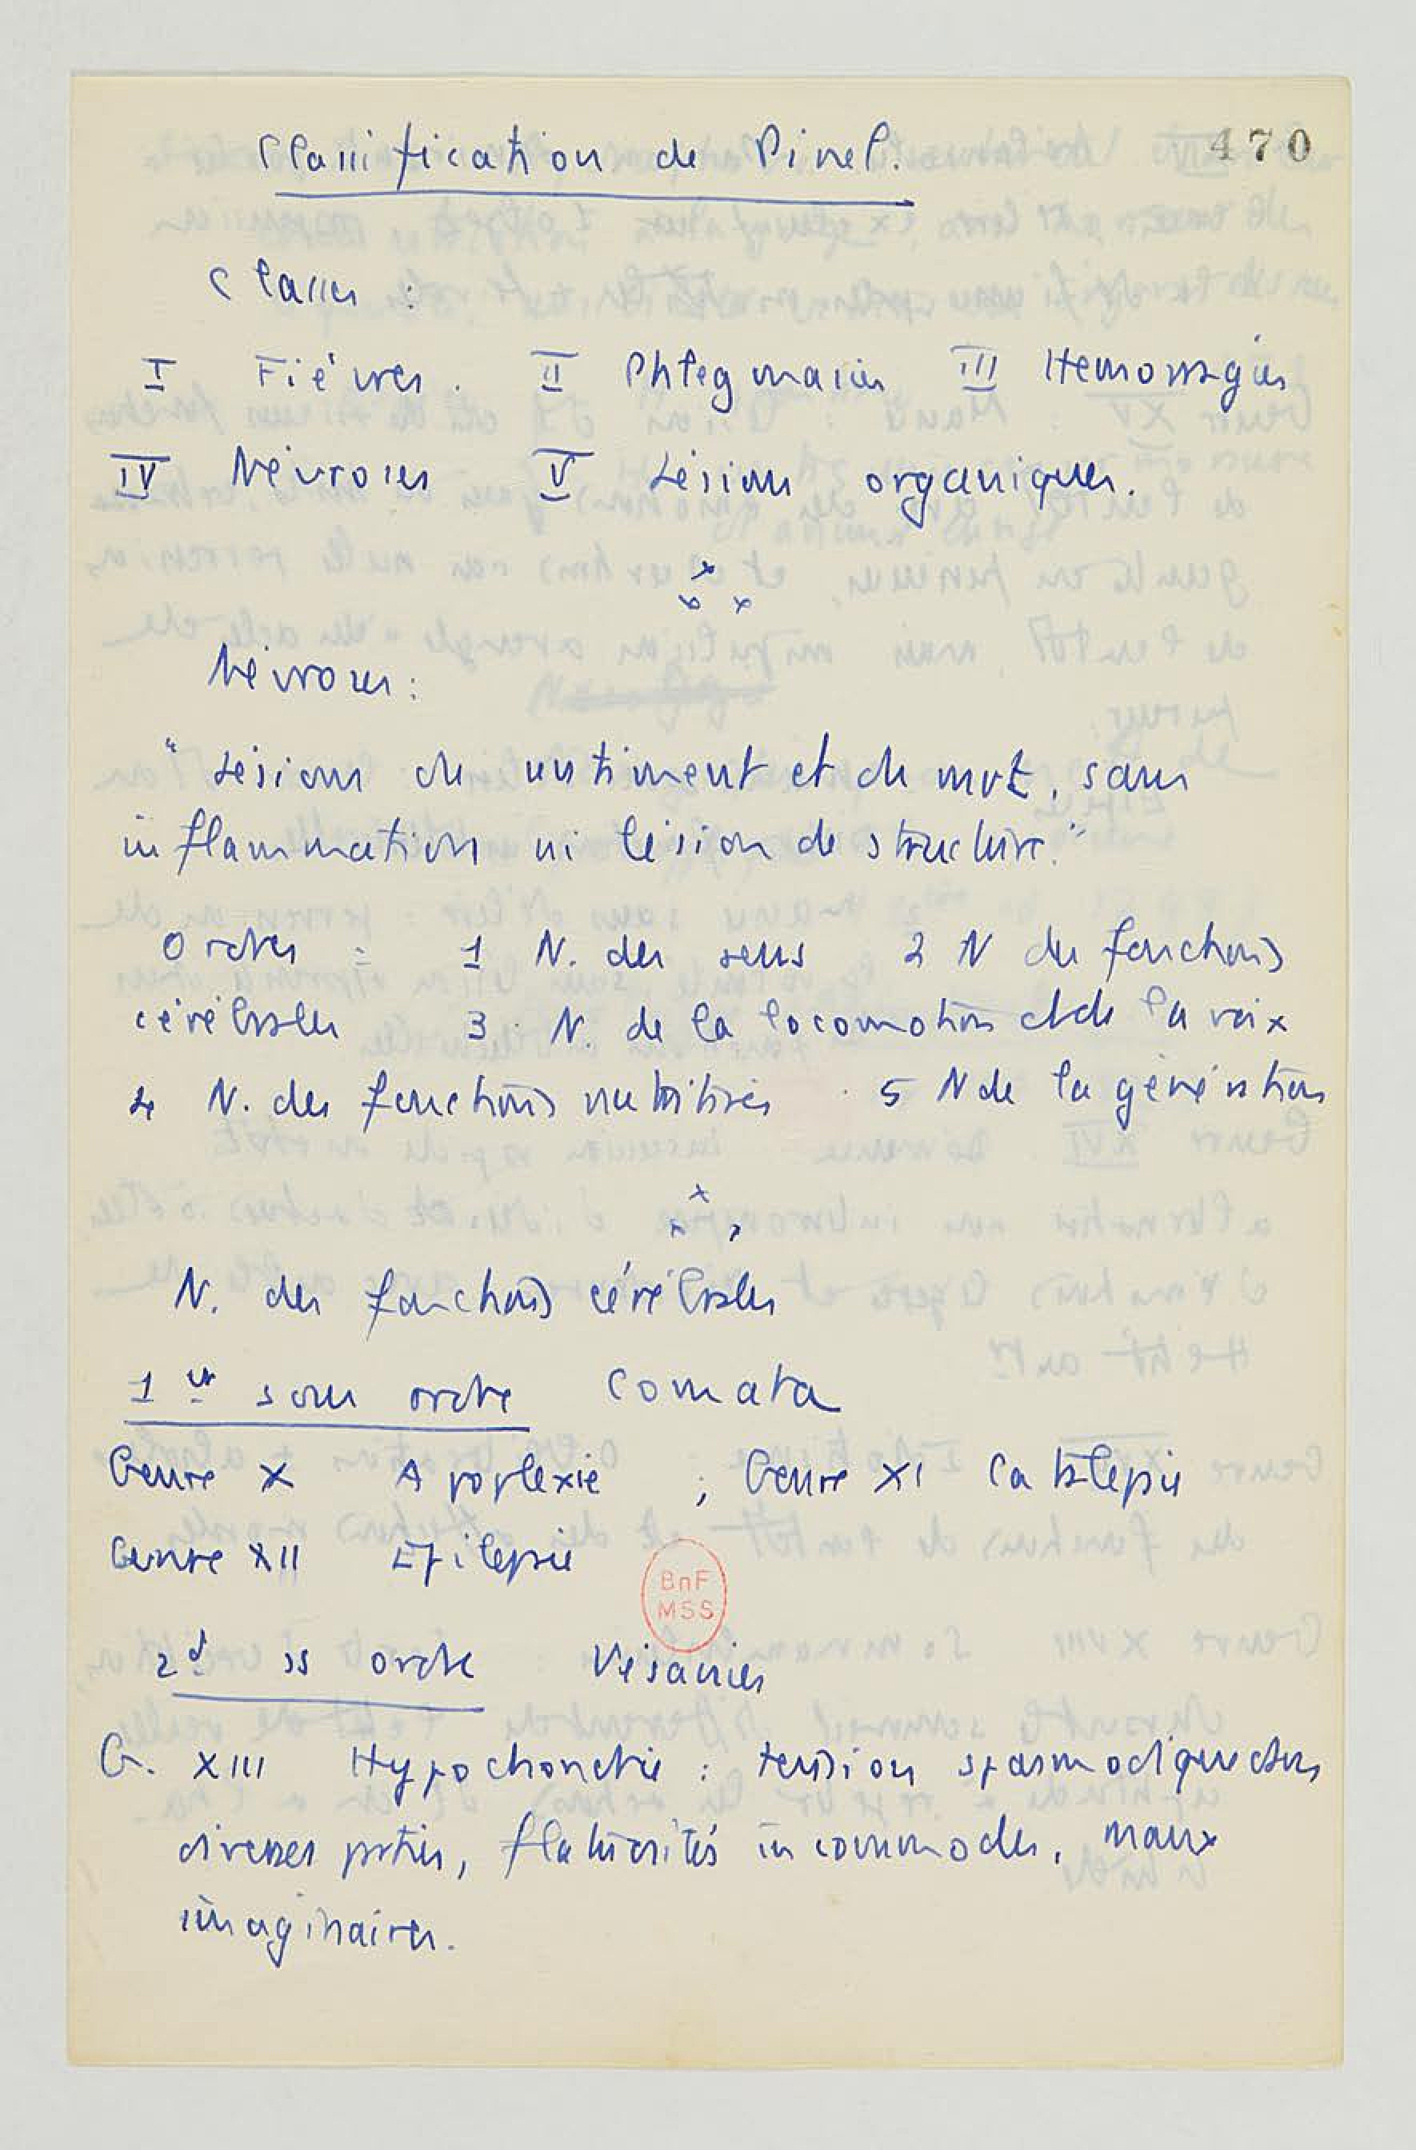 Classification de Pinel.
470
Classes :
I Fièvres . II Phlegmasies III Hemorragies
IV Névroses V Lésions organiques.
x
x x
Névroses :
"Lésions du sentiment et du mvt, sans
inflammation ni lésion de structure."
Ordres : 1 N. des sens 2 N des fonctions
cérébrales 3. N. de la locomotion et de la voix
4 N. des fonctions nutritives . 5 N de la génération
x
x x
N. des fonctions cérébrales
1er sous ordre Comata
Genre X Apoplexie ; Genre XI Catalepsie
Genre XII Epilepsie
BnF
MSS
2d ss ordre Vésanies
G. XIII Hypochondrie : tension spasmodique des
diverses parties, flatuosités incommodes, maux
imaginaires.